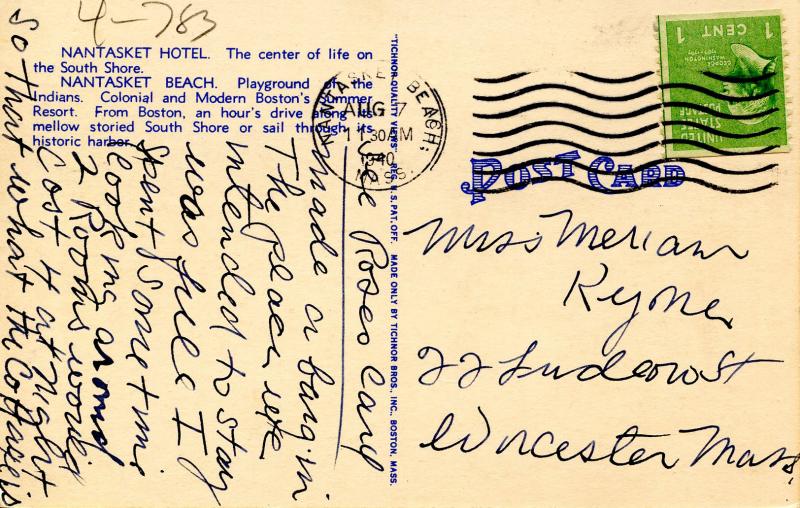 4-783
NANTASKET HOTEL. The center of life on
the South Shore.
NANTASKET BEACH. Playground of the
Indians. Colonial and Modern Boston's Summer
Resort. From Boston, an hour's drive along its
mellow storied South Shore or sail through its
historic harbor.
"TICHNOR QUALITY VIEWS" REG. U. S. PAT. OFF. MADE ONLY BY TICHNOR BROS., INC., BOSTON, MASS.
NANTASKET BEACH,
AUG 7
11 30AM
1940
MASS.
UNITED
STATES
POSTAGE
GEORGE
WASHINGTON
1 CENT 1
POST CARD
See Roses Card
made a bang in
The place we
intended to stay
was full I
spent sometime
looking around
2 Rooms would
cost 4 at night
So that what the Cottage is
Miss Meriam
22 St
Worcester Mass.